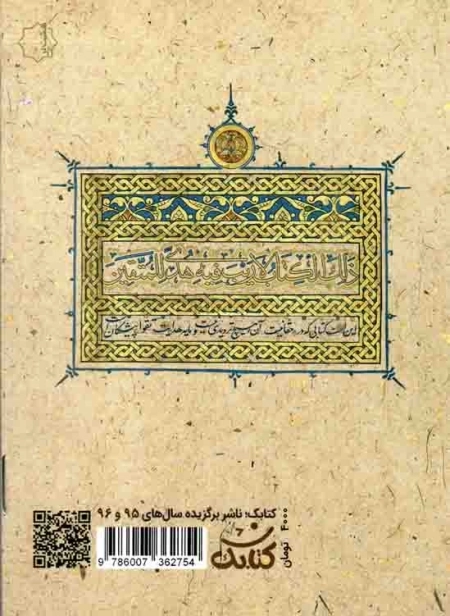 ذَلِكَ الْكِتَابُ لَا رَيْبَ فِيهِ هُدًى لِلْمُتَّقِينَ
این است کتابی که در حقانیت آن هیچ تردیدی نیست و مایه هدایت تقواپیشگان است
کتابک؛ ناشر برگزیده سال‌های ۹۵ و ۹۶
۴۰۰۰ تومان
کتابک
9 786007 362754